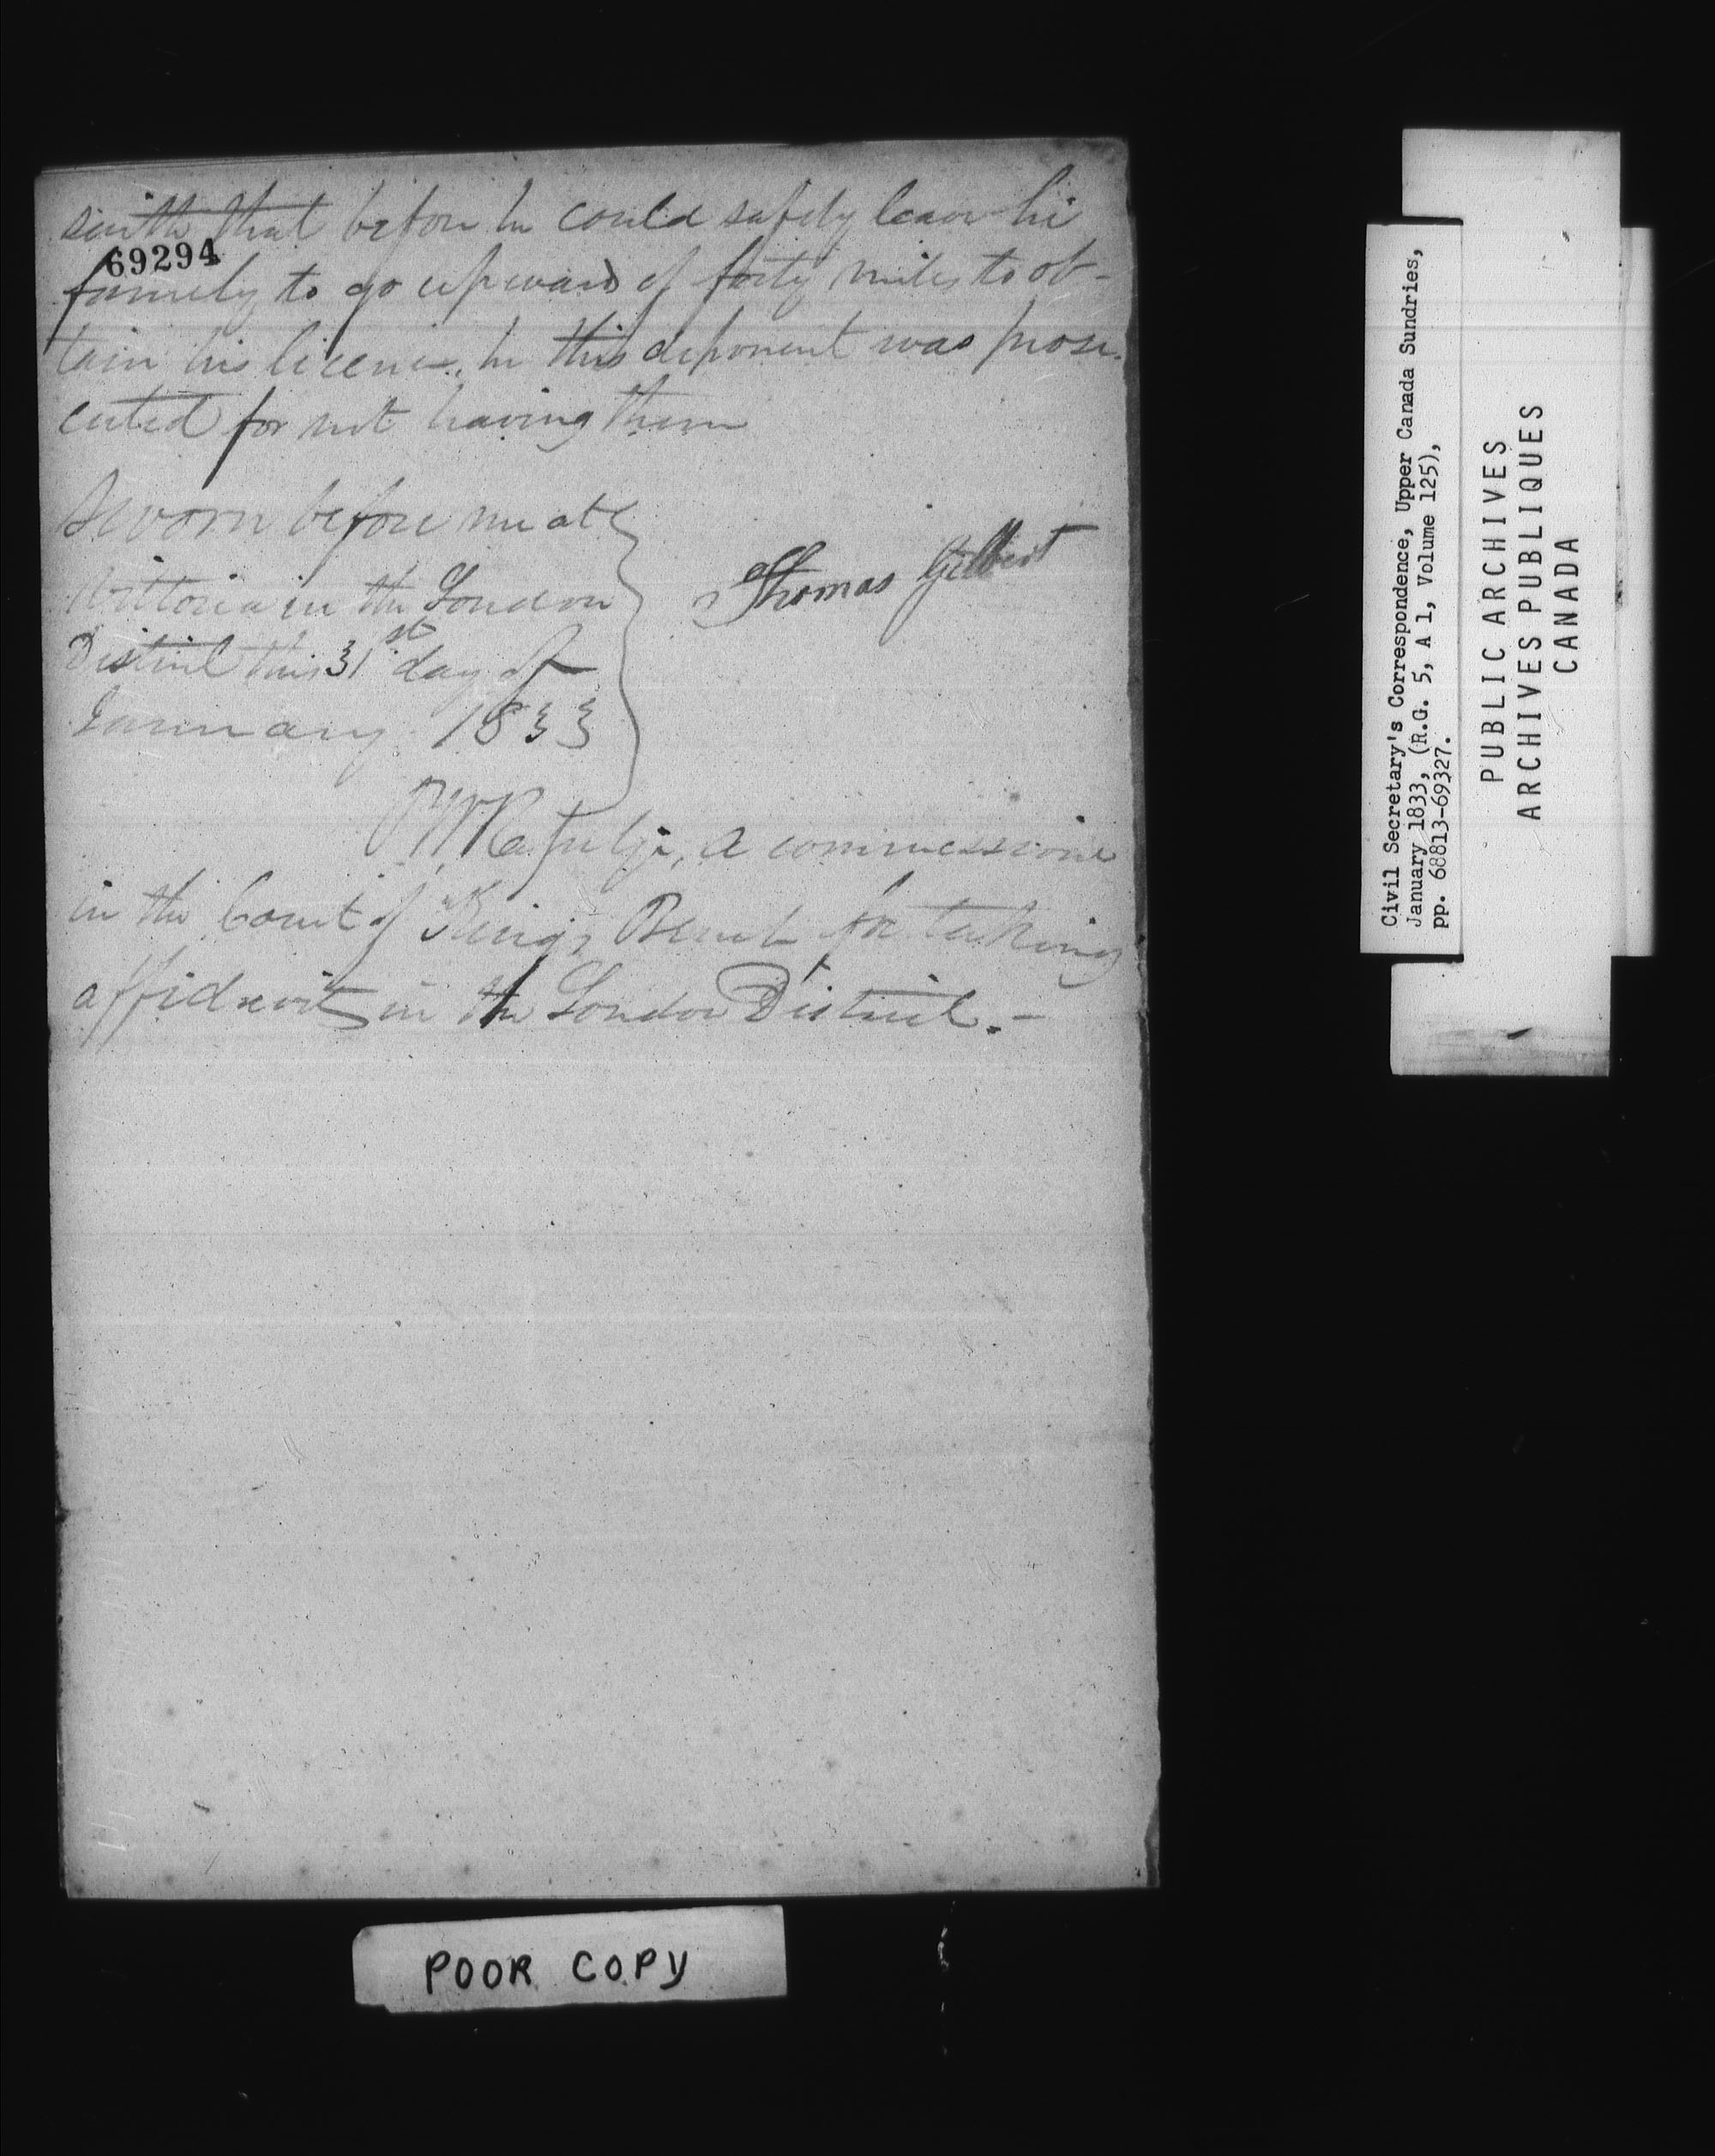 saith that before he could safely leave his
69294
family to go upward of forty miles to ob-
tain his licence, he this deponent was prose-
cuted for not having them
Sworn before me at
Vittoria in the London
District this 31st day of
January 1833
Thomas Gilbert
a commissioner
in the Court of King's Bench for taking
affidavits in the London District.-
POOR COPY
Civil Secretary's Correspondence, Upper Canada Sundries,
January 1833, (R.G. 5, A 1, Volume 125),
pp. 68813-69327.
PUBLIC ARCHIVES
ARCHIVES PUBLIQUES
CANADA